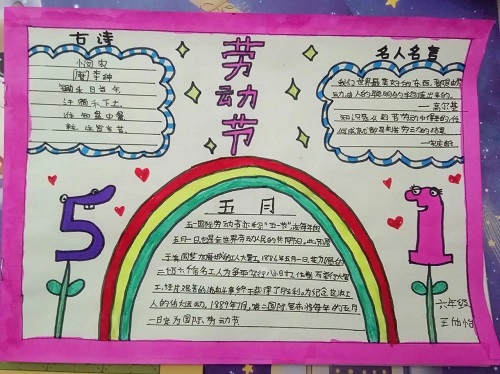 劳动节
古诗
小悯农
[唐]李绅
锄禾日当午
汗滴禾下土
谁知盘中餐
粒粒皆辛苦
名人名言
我们世界最美好的东西，都是由劳
动，由人的聪明的手创造出来的。
——高尔基
知识是从
任
何成就都是刻苦劳动的结果
——宋庆龄
5
1
五月
五一国际劳动者
"五一节"
在每年的
五月一日，也是全世界劳动人民的共同节日，此节源
于美国芝加哥城的工人大罢工，1886年5月一日，芝加哥的
二十一万六千余名工人为争取实行八小时工作制而举行大罢
工，经过艰苦的流血斗争终于获得了胜利，为纪念这次工
人的伟大运动，1889年7月，第二国际宣布将每年的五月
一日定为国际劳动节
六年级
王